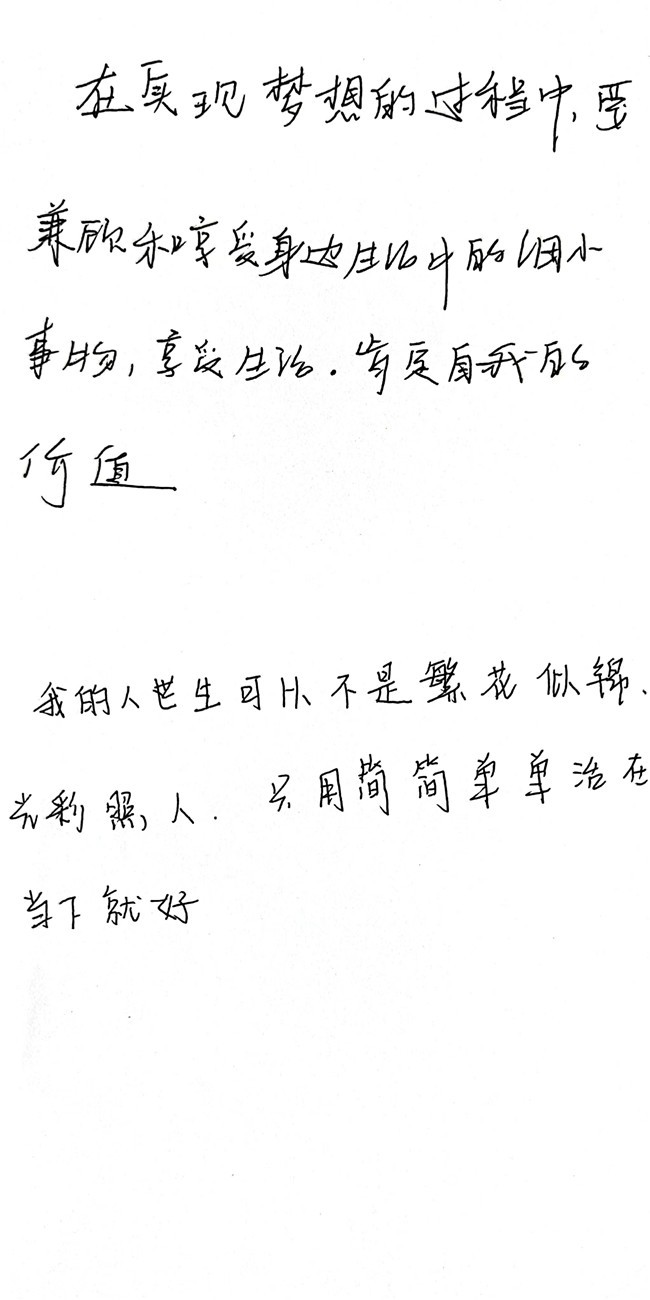 在实现梦想的过程中,要
兼顾和享受身边生活中的细小
事物,享受生活.肯定自我的
价值
我的人世生可以不是繁花似锦、
光彩照人.只用简简单单活在
当下就好